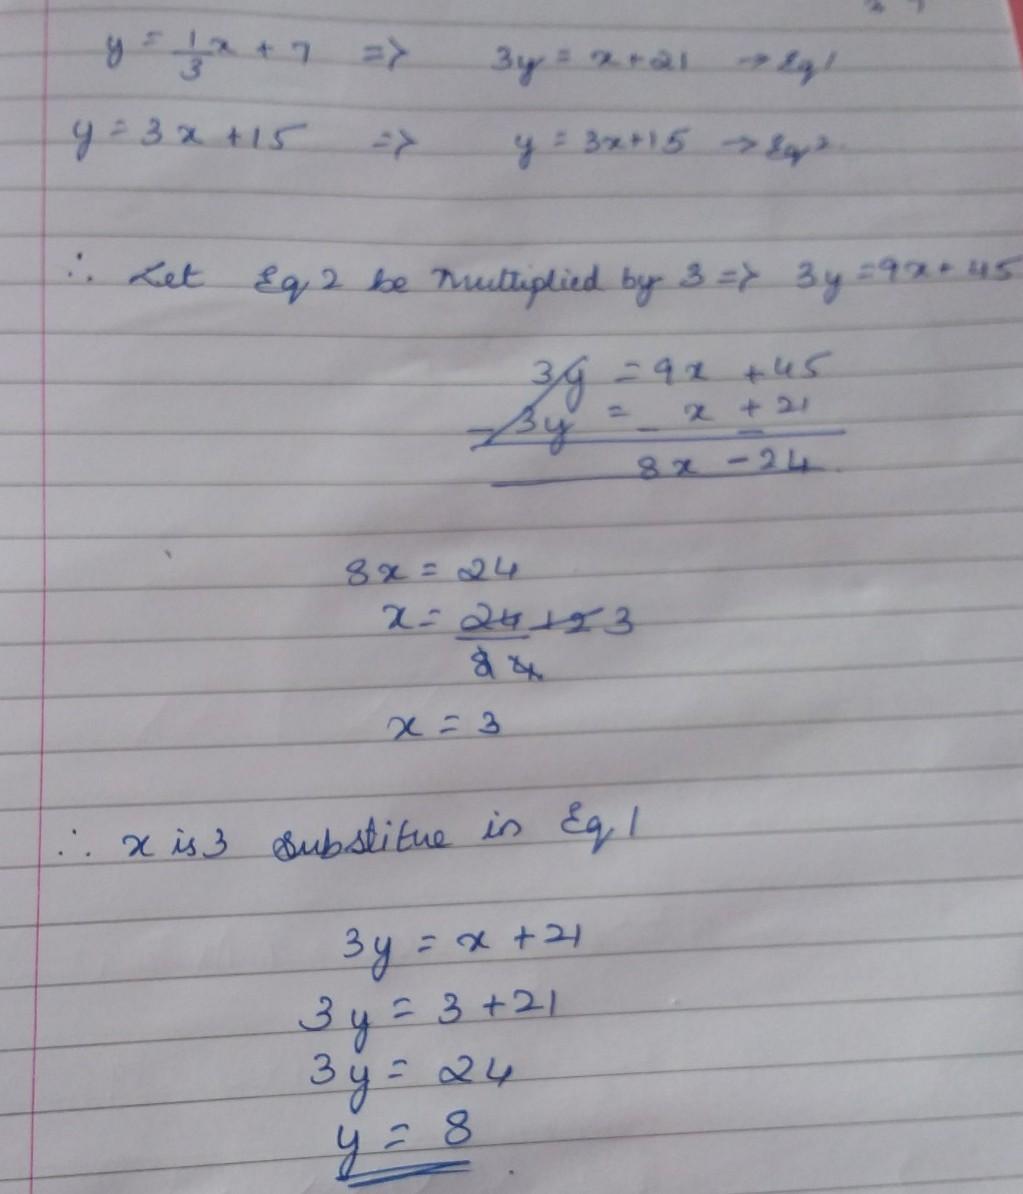 y = 1/3 x + 7 => 3y = x + 21 → Eq 1
y = 3x + 15 => y = 3x + 15 → Eq 2
∴ Let Eq 2 be multiplied by 3 => 3y = 9x + 45
3y = 9x + 45
- 3y = - x + 21
8x - 24
8x = 24
x = 24 3
8
x = 3
∴ x is 3 substitue in Eq 1
3y = x + 21
3y = 3 + 21
3y = 24
y = 8